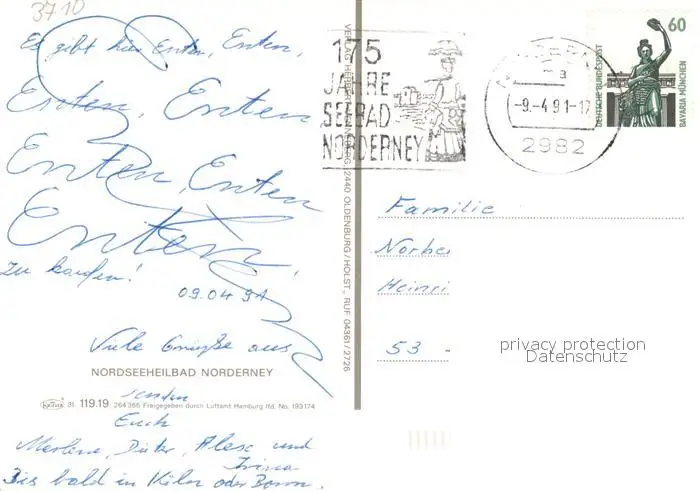 3710
Es gibt hier Enten, Enten,
Enten, Enten
Enten, Enten
Enten,
zu kaufen!
09.04 91
Viele Grüße aus
NORDSEEHEILBAD NORDERNEY
Krüger 31 119.19 264 366 Freigegeben durch Luftamt Hamburg lfd. No. 193174
senden
Euch
Merlene, Dieter, Alex und
Irina
Bis bald in Köln oder Bonn.
2440 OLDENBURG/HOLST., RUF 04361/2726
175
JAHRE
SEEBAD
NORDERNEY
-9.-4.91-17
2982
60
DEUTSCHE BUNDESPOST
BAVARIA MÜNCHEN
Familie
Norbe
Heinri
53 -
privacy protection
Datenschutz